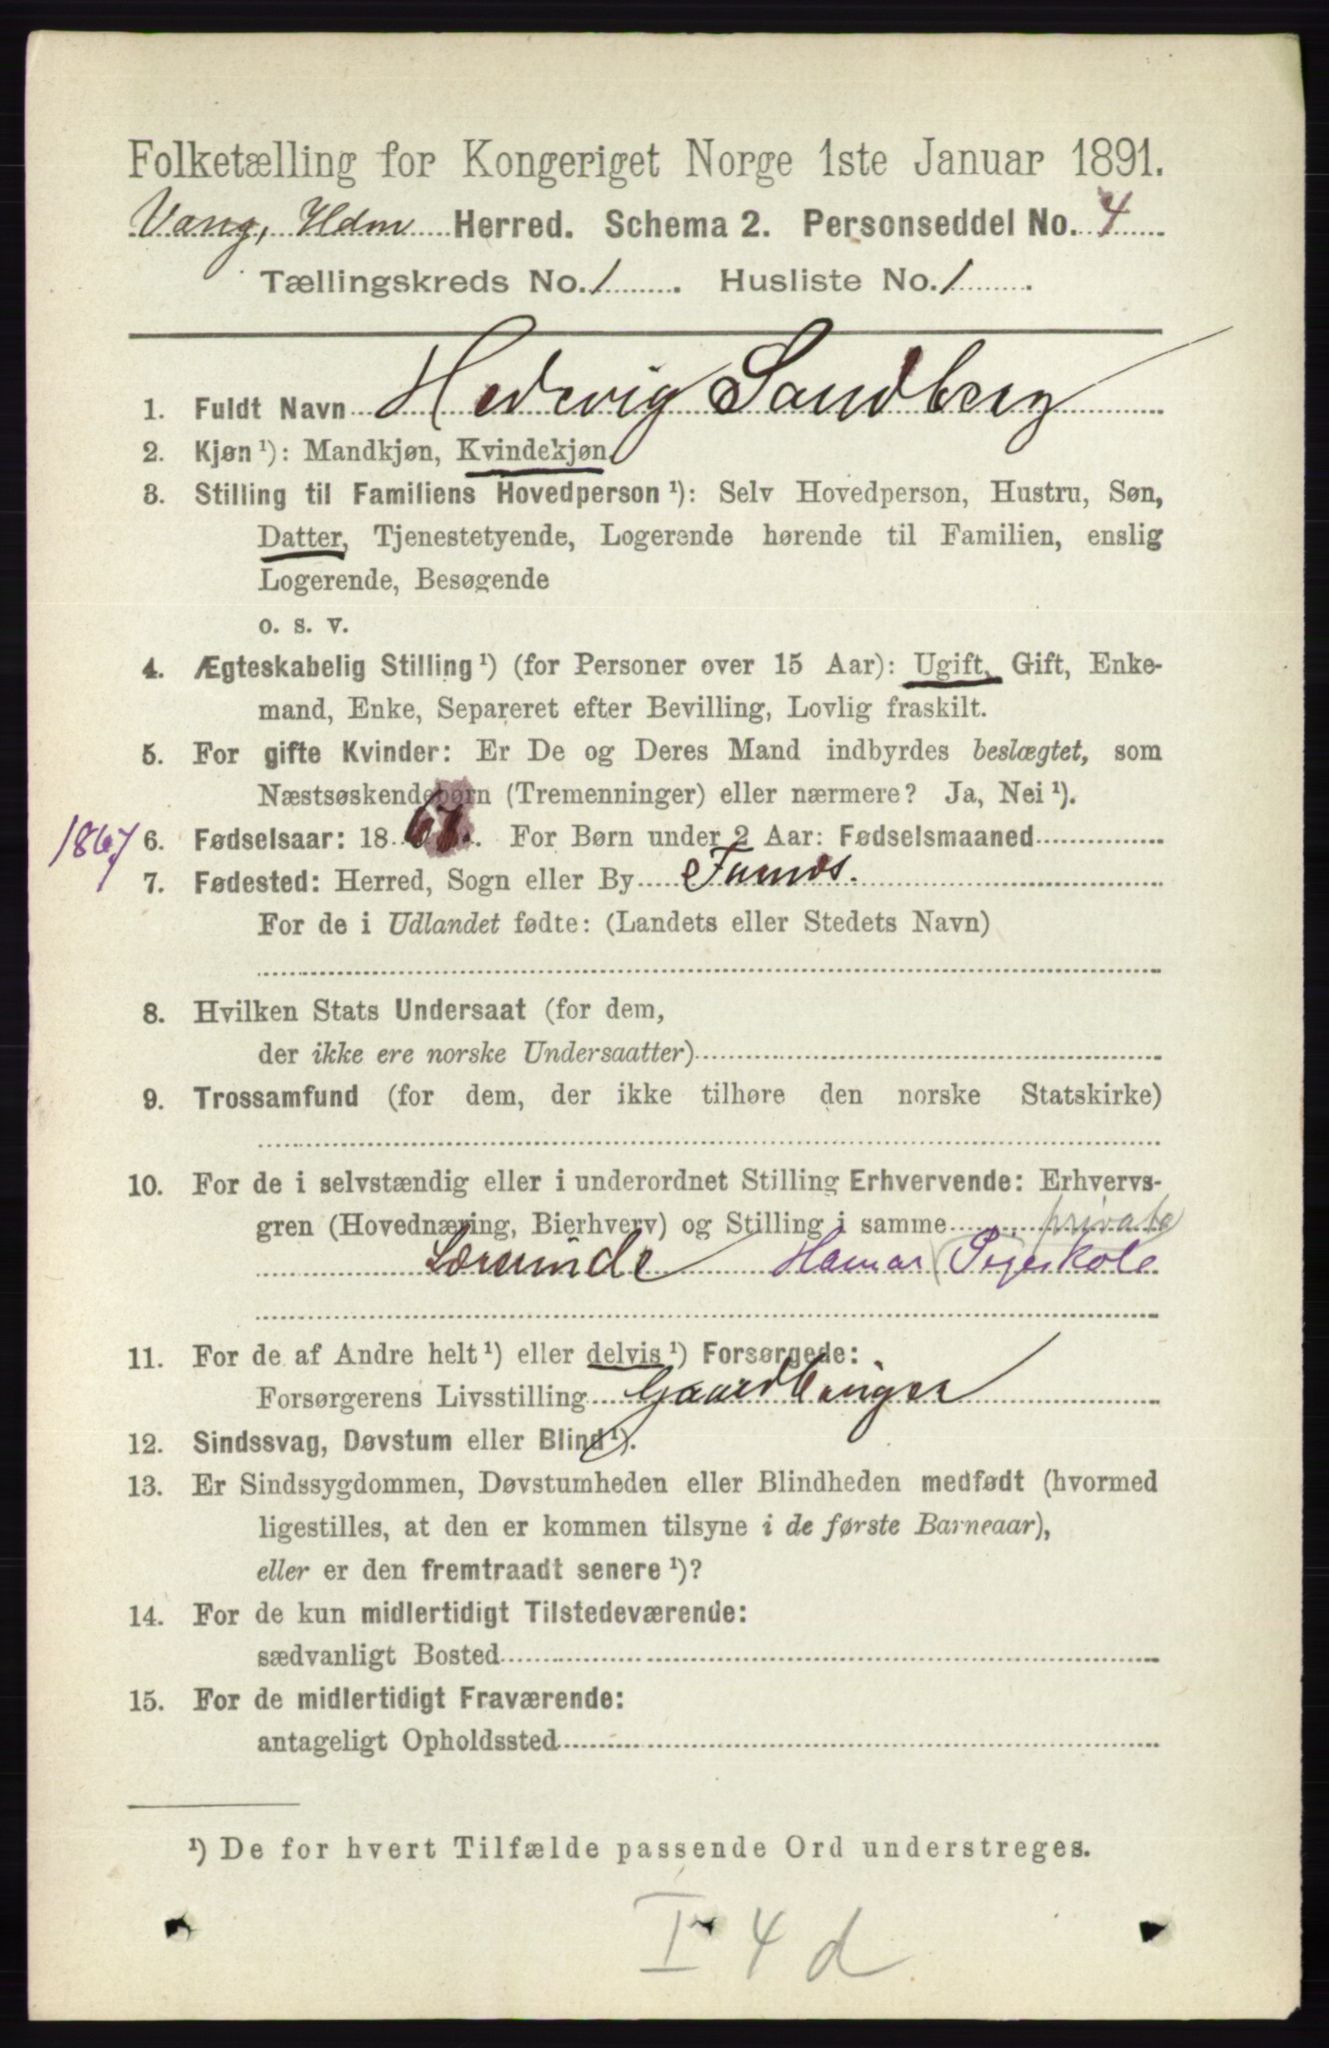 Folketælling for Kongeriget Norge 1ste Januar 1891.
Vang, Hdm Herred. Schema 2. Personseddel No. 4
Tællingskreds No. 1. Husliste No. 1.
1. Fuldt Navn Hedevig Sandberg
2. Kjøn ¹): Mandkjøn, Kvindekjøn.
3. Stilling til Familiens Hovedperson ¹): Selv Hovedperson, Hustru, Søn,
Datter, Tjenestetyende, Logerende hørende til Familien, enslig
Logerende, Besøgende
o. s. v.
4. Ægteskabelig Stilling ¹) (for Personer over 15 Aar): Ugift, Gift, Enke-
mand, Enke, Separeret efter Bevilling, Lovlig fraskilt.
5. For gifte Kvinder: Er De og Deres Mand indbyrdes beslægtet, som
Næstsøskendebørn (Tremenninger) eller nærmere? Ja, Nei ¹).
1867 6. Fødselsaar: 1867. For Børn under 2 Aar: Fødselsmaaned
7. Fødested: Herred, Sogn eller By Furnæs.
For de i Udlandet fødte: (Landets eller Stedets Navn)
8. Hvilken Stats Undersaat (for dem,
der ikke ere norske Undersaatter)
9. Trossamfund (for dem, der ikke tilhøre den norske Statskirke)
10. For de i selvstændig eller i underordnet Stilling Erhvervende: Erhvervs-
gren (Hovednæring, Bierhverv) og Stilling i samme private
Lærerinde Hamar Pigeskole
11. For de af Andre helt ¹) eller delvis ¹) Forsørgede:
Forsørgerens Livsstilling Gaardbruger
12. Sindssvag, Døvstum eller Blind ¹).
13. Er Sindssygdommen, Døvstumheden eller Blindheden medfødt (hvormed
ligestilles, at den er kommen tilsyne i de første Barneaar),
eller er den fremtraadt senere ¹)?
14. For de kun midlertidigt Tilstedeværende:
sædvanligt Bosted
15. For de midlertidigt Fraværende:
antageligt Opholdssted
¹) De for hvert Tilfælde passende Ord understreges.
I 4 d